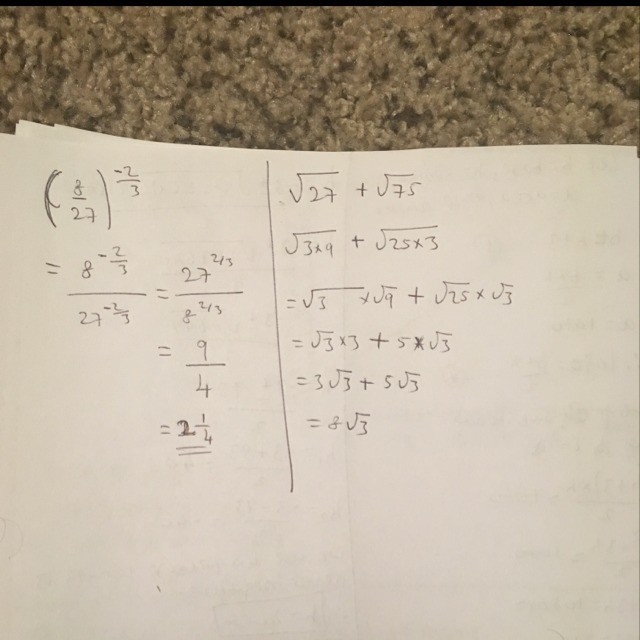 (8/27)^(-2/3)
= 8^(-2/3) / 27^(-2/3) = 27^(2/3) / 8^(2/3)
= 9/4
= 2 1/4
√27 + √75
√3×9 + √25×3
= √3 × √9 + √25 × √3
= √3 × 3 + 5 × √3
= 3√3 + 5√3
= 8√3